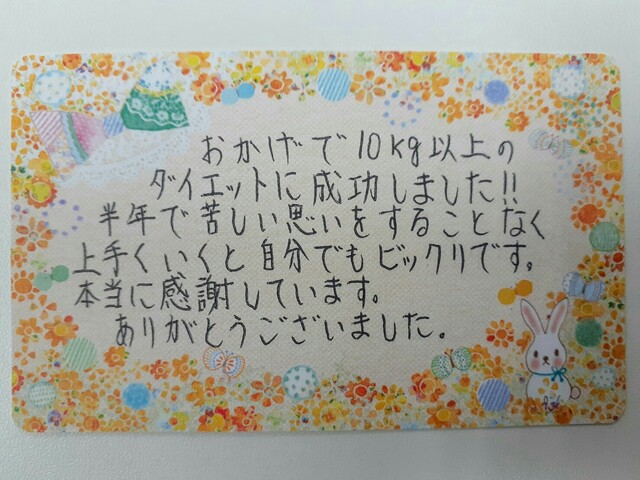 おかげで10kg以上の
ダイエットに成功しました!!
半年で苦しい思いをすることなく
上手くいくと自分でもビックリです。
本当に感謝しています。
ありがとうございました。